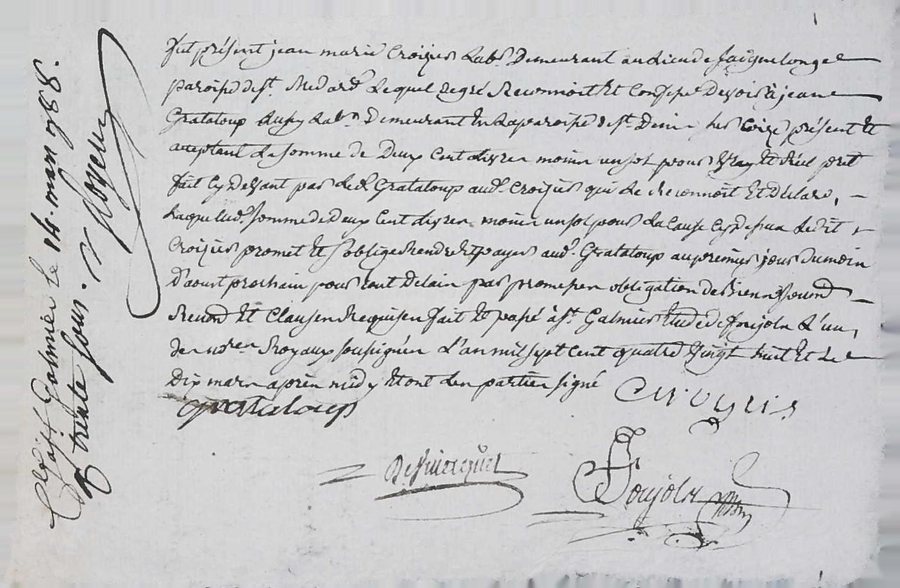 fut présent jean marie Croizier Labr. Demeurant au Lieu de
paroisse de st. Medard Lequel degré Reconnoit Et Confesse Devoir à jean
Grataloup aussy Labr. Demeurant En La paroisse de st. Denis présent Et
acceptant La somme de Deux Cent Livres moins un sol pour Vray Et Réel pret
fait Cy Devant par Led. Grataloup aud. Croizier qui Le Reconnoit Et Declare,
Laquelle d. somme de deux Cent Livres moins un sol pour La Cause Cy dessus Ledit
Croizier promet Et s'oblige Rendre Et payer aud. Grataloup au premier jour du mois
D'aoust prochain pour tout Delais par promesses obligation de Biens
Renond Et Clauses Requises fait Et passé à st. Galmier Etude de foujols L'un
des nores Royaux soussignés L'an mil sept Cent quatre Vingt huit Et Le
Dix mars après midy Et ont Les parties signé
Croyzier
grataloup
foujols
à st Galmier Le 14. mars 1788.
trente sous.